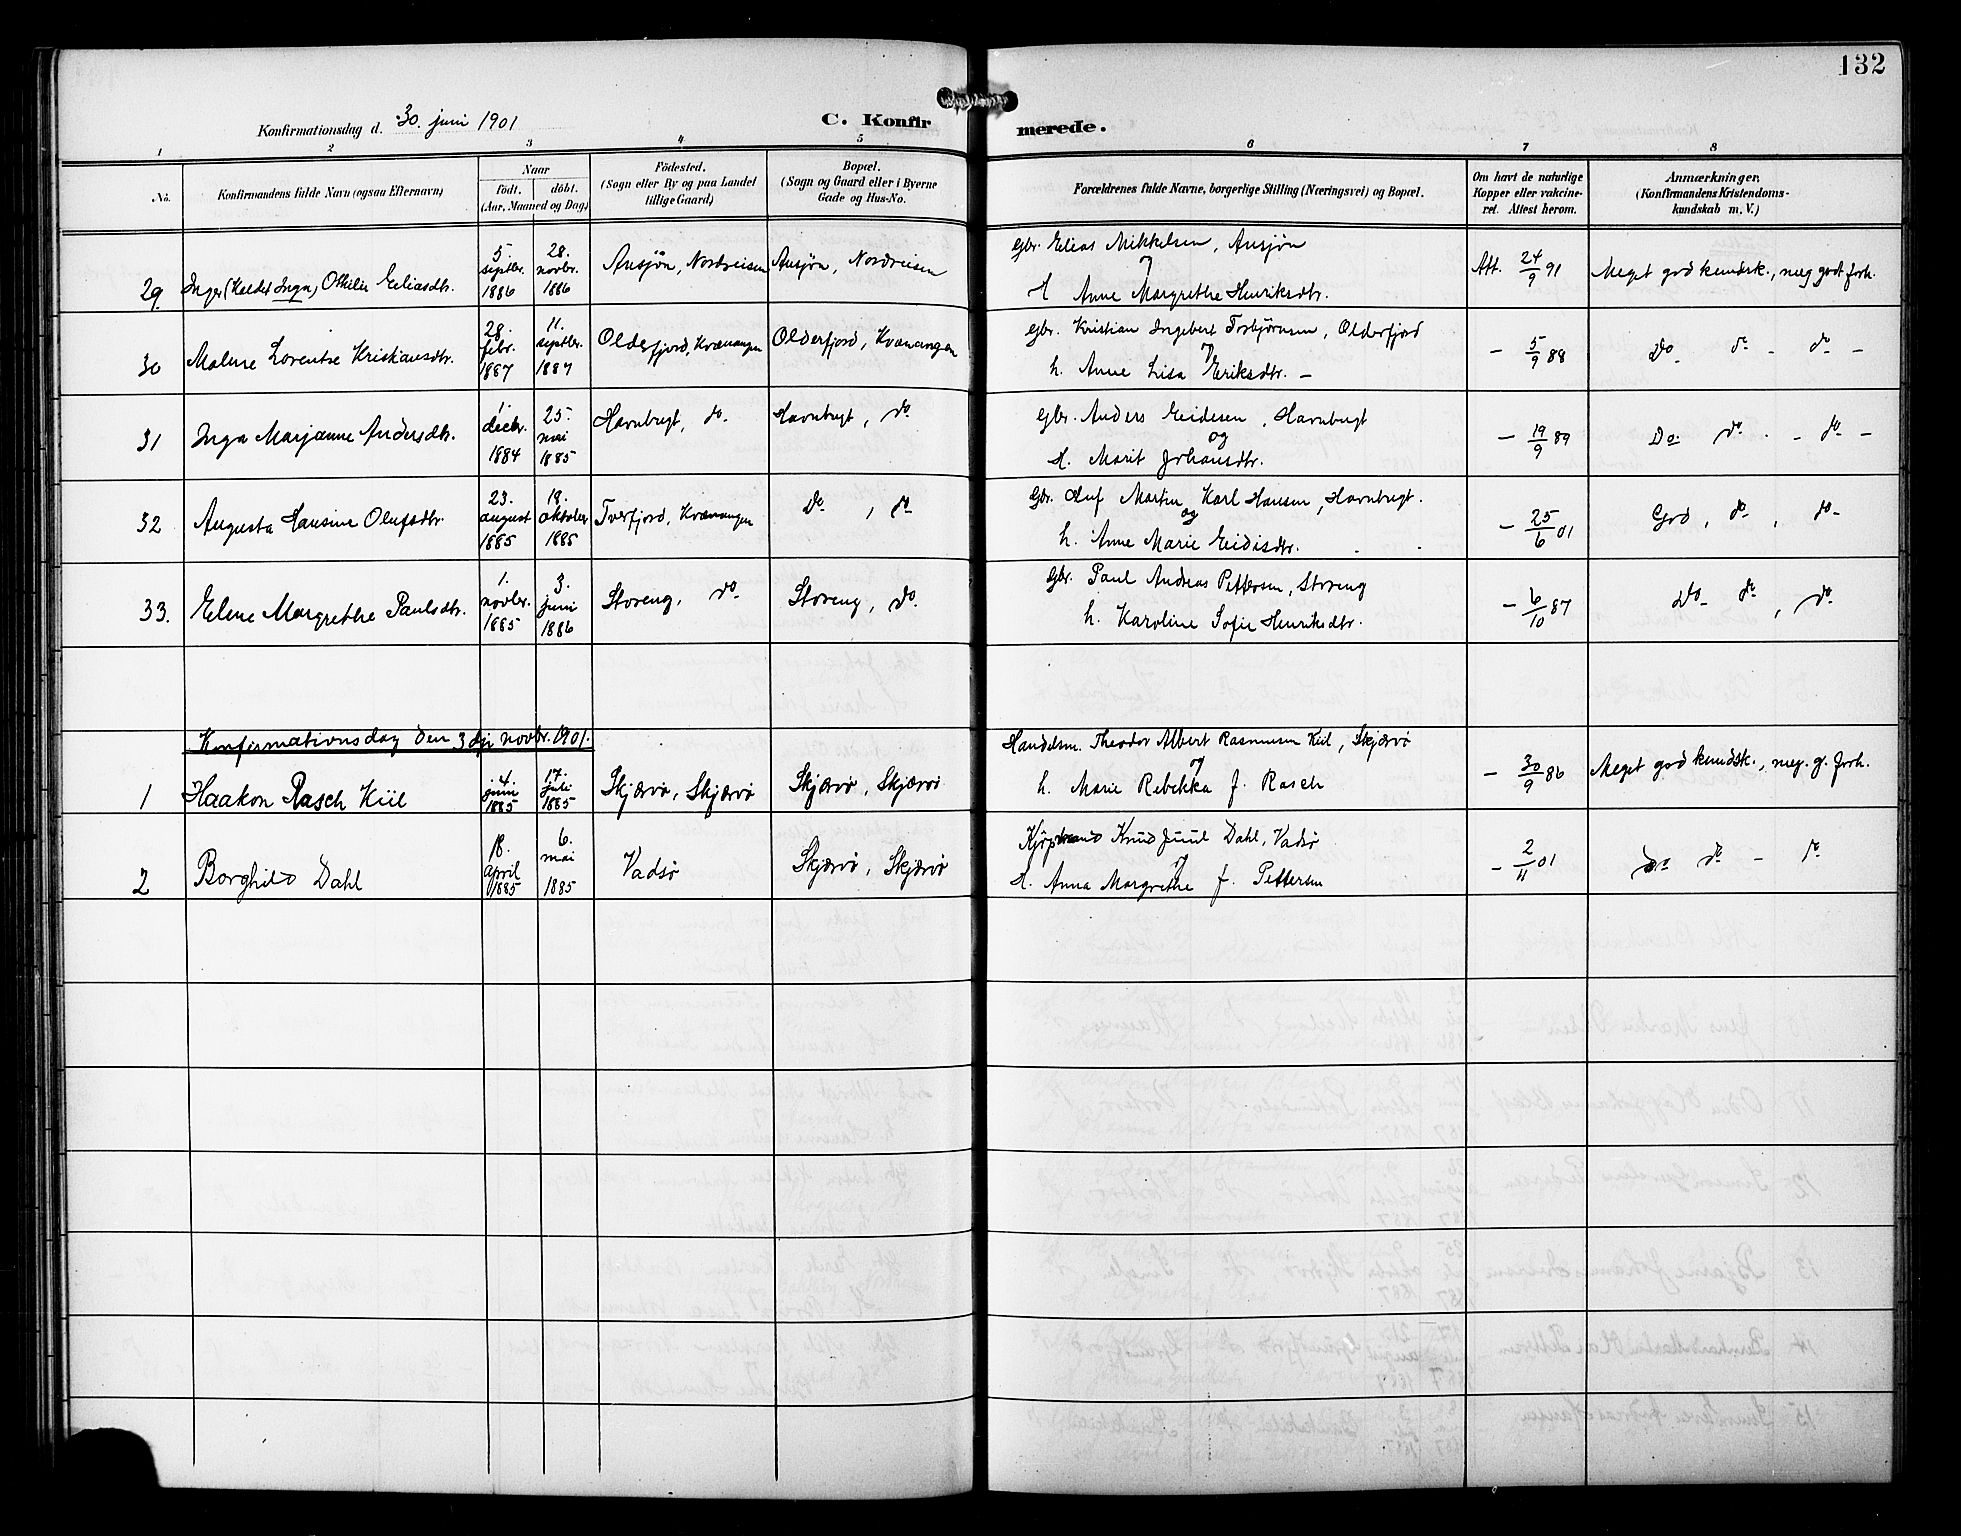 132
Konfirmationsdag d. 30. juni 1901
C. Konfirmerede.
1 2 3 4 5 6 7 8
No.
Konfirmandens fulde Navn (ogsaa Efternavn)
Naar
födt. döbt.
(Aar, Maaned og Dag)
Födested.
(Sogn eller By og paa Landet
tillige Gaard)
Bopæl.
(Sogn og Gaard eller i Byerne
Gade og Hus-No.
Forældrenes fulde Navne, borgerlige Stilling (Næringsvei) og Bopæl.
Om havt de naturlige
Kopper eller vakcine-
ret. Attest herom.
Anmærkninger.
(Konfirmandens Kristendoms-
kundskab m. V.)
29. Inger (kaldet Inga) Othilie Eliasdtr.
5. septbr. 1886
28. novbr. 1886
Ansjøn, Nordreisen
Ansjøn, Nordreisen
Gbr. Elias Mikkelsen, Ansjøn
og
H. Anne Margrethe Henriksdtr.
Att. 24/9 91
Meget god kundsk., meg. godt forh.
30 Malene Lorentse Kristiansdtr.
28. febr. 1887
11. septbr. 1887
Olderfjord, Kvænangen
Olderfjord, Kvænangen
Gbr. Kristian Ingebert Torbjørnsen, Olderfjord
og
h. Anne Lisa Eriksdtr. –
– 5/9 88
Do – do – do –
31 Inga Marjanne Andersdtr.
1. decbr. 1884
25. mai 1885
Havnbugt, do
Havnbugt, do
Gbr. Anders Eidesen, Havnbugt
og
H. Marit Johansdtr.
– 19/9 89
Do. do. – do –
32 Augusta Hansine Olufsdtr.
23. august 1885
18. oktober 1885
Tverfjord, Kvænangen
Do, do
Gbr. Oluf Martin Karl Hansen, Havnbugt.
og
h. Anne Marie Eidisdtr.
– 25/6 01
God, do, do–
33. Elene Margrethe Paulsdtr.
1. novbr. 1885
3. juni 1886
Storeng, do.
Storeng, do.
Gbr. Paul Andreas Pettersen, Storeng
h. Karoline Sofie Henriksdtr.
– 6/10 87
Do – do, do
Konfirmationsdag den 3dje novbr. 1901.
1 Haakon Rasch Kiil
4. juni 1885
17. juli 1885
Skjærvø, Skjærvø
Skjærvø, Skjærvø
Handelsm. Theodor Albert Rasmussen Kiil, Skjærvø
og
h. Marie Rebekka f. Rasch
– 30/9 86
Meget god kundsk., meg. g. forh.
2 Borghild Dahl
18. april 1885
6. mai 1885
Vadsø
Skjærvø, Skjærvø
Kjøpmand Knud Juul Dahl, Vadsø
og
H. Anna Margrethe f. Pettersen
– 2/11 01
Do do – do